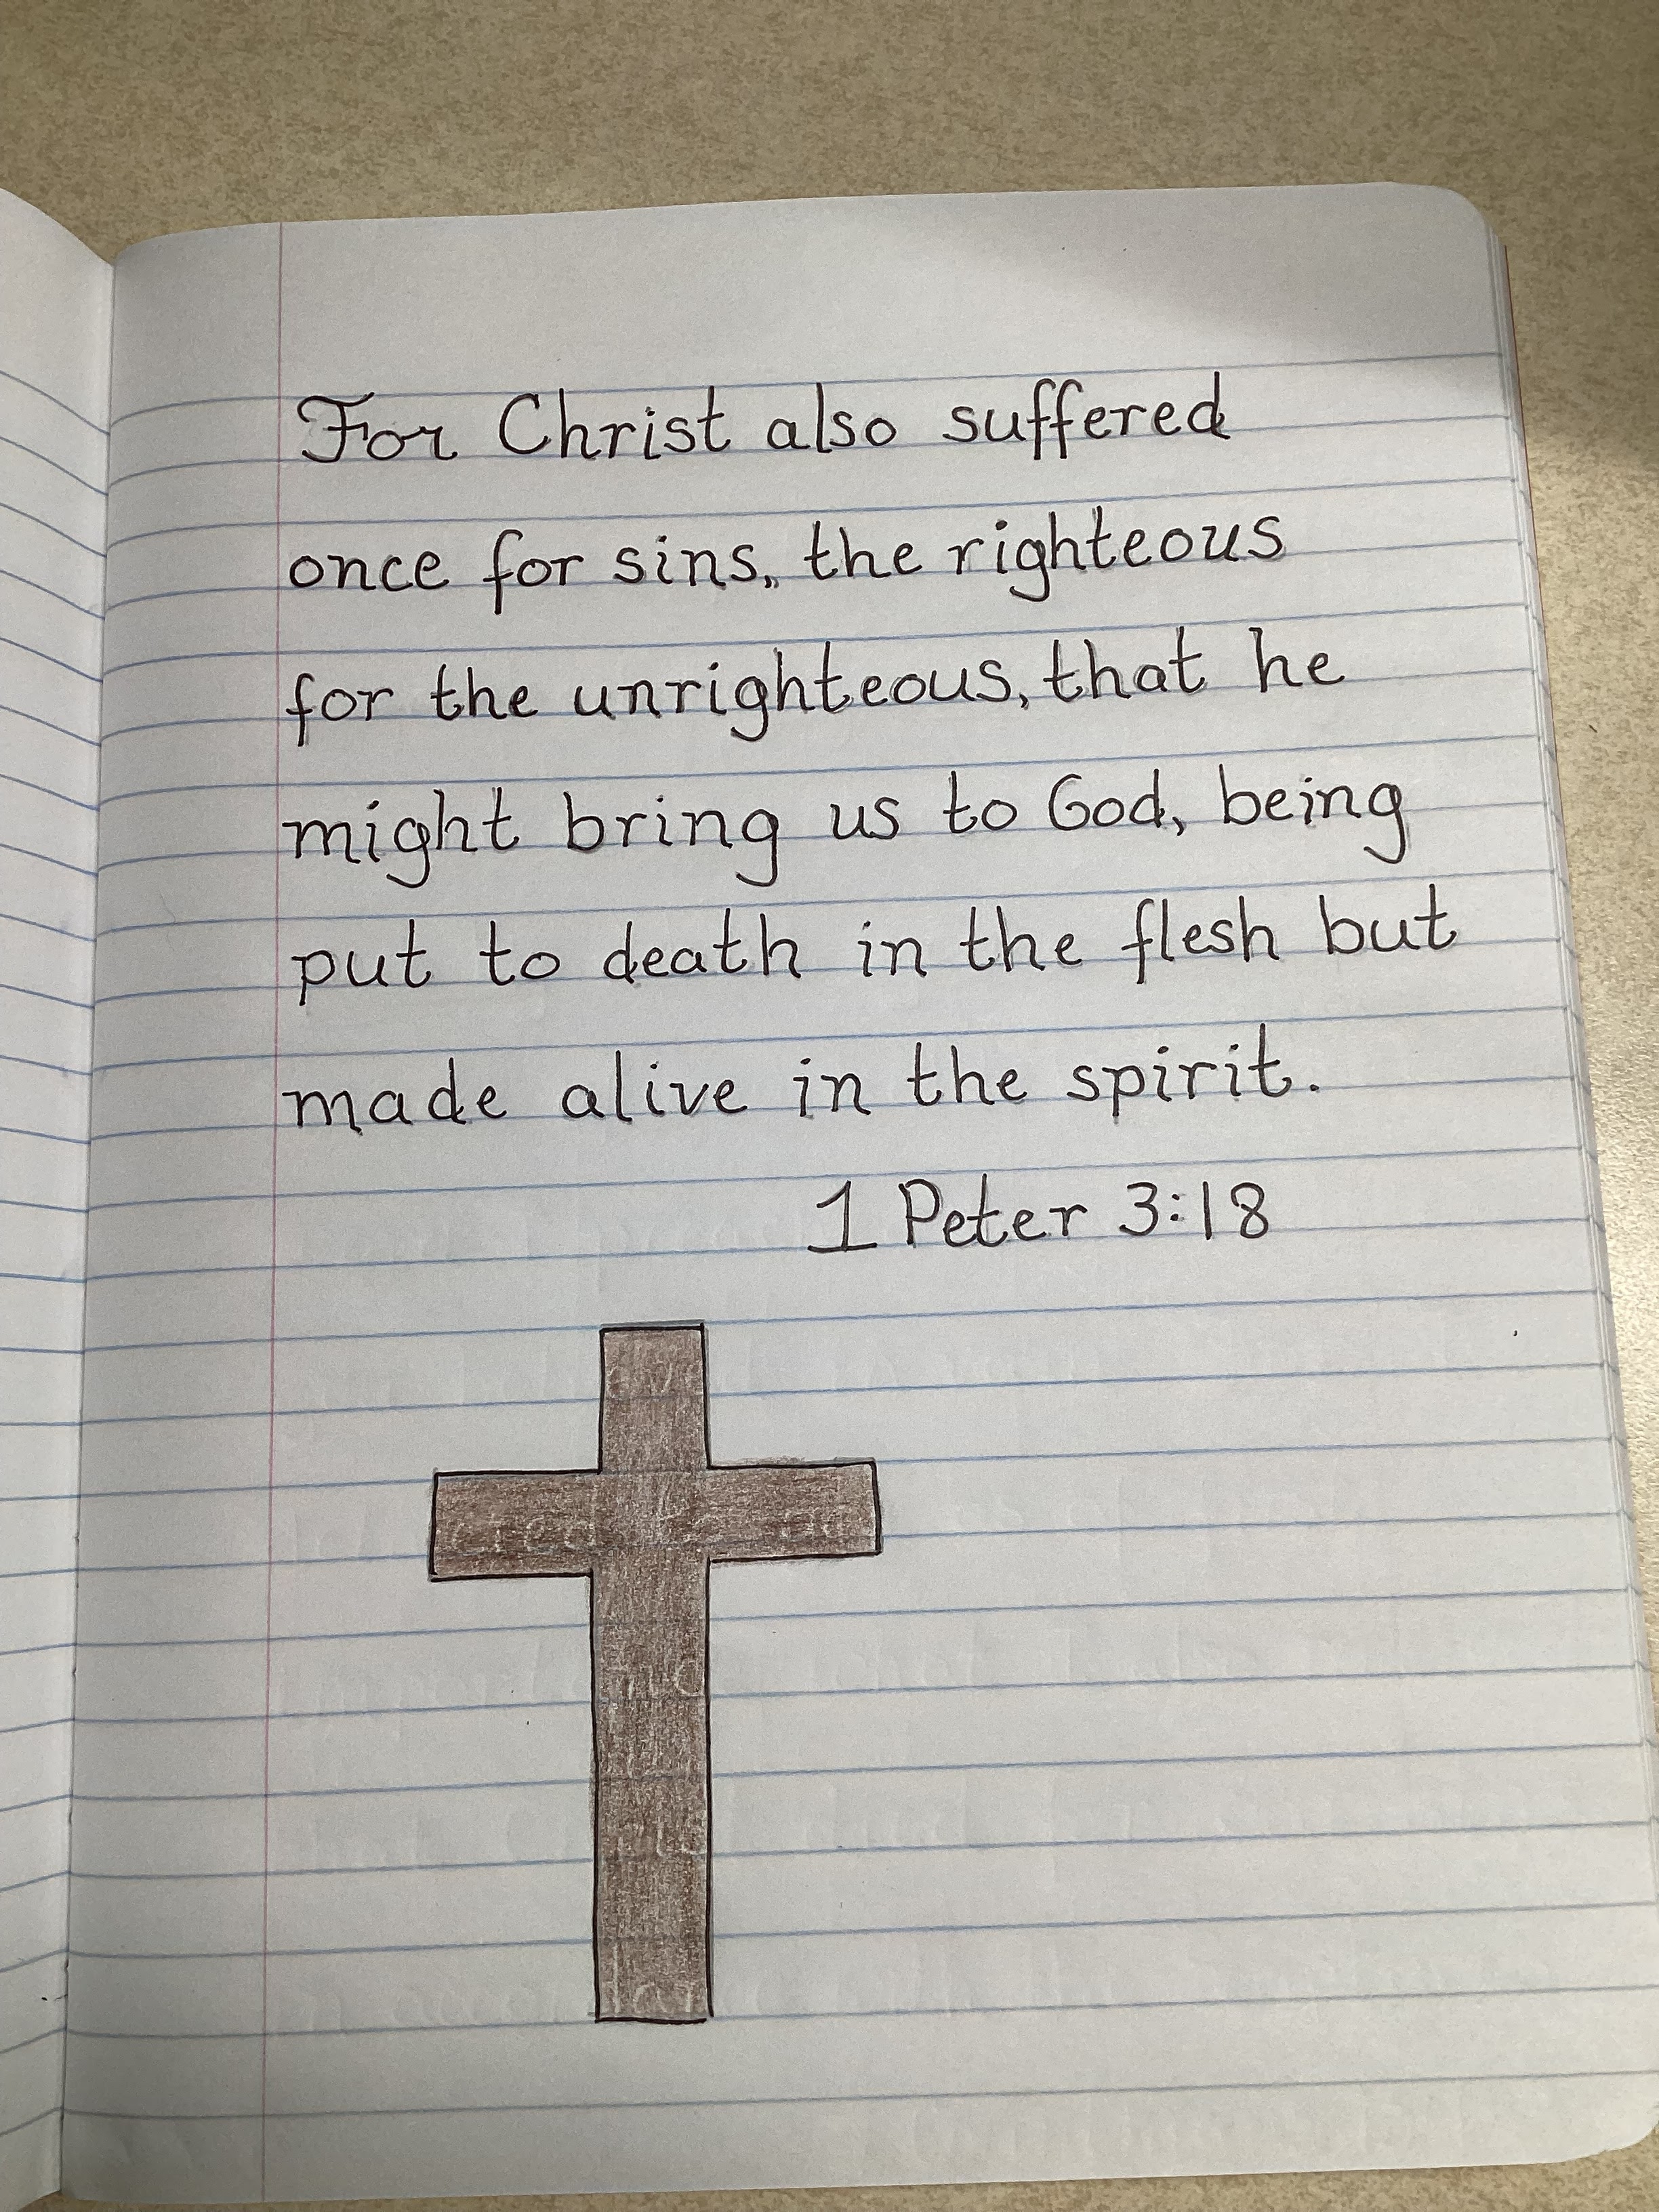 For Christ also suffered
once for sins, the righteous
for the unrighteous, that he
might bring us to God, being
put to death in the flesh but
made alive in the spirit.
1 Peter 3:18